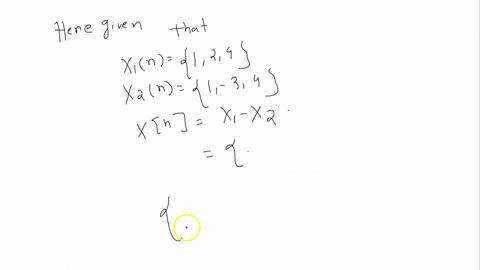 Here given that
X1(n) = {1, 2, 4}
X2(n) = {1, -3, 4}
X[n] = X1 - X2
= {
{